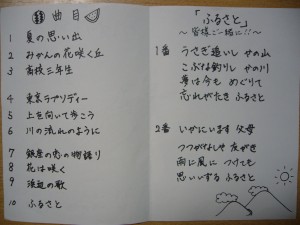 曲目
1 夏の思い出
2 みかんの花咲く丘
3 高校三年生
4 東京ラプソディー
5 上を向いて歩こう
6 川の流れのように
7 銀座の恋の物語り
8 花は咲く
9 浜辺の歌
10 ふるさと
「ふるさと」
〜皆様ご一緒に!!〜
1番 うさぎ追いし かの山
こぶな釣りし かの川
夢は今も めぐりて
忘れがたき ふるさと
2番 いかにいます 父母
つつがなしや 友がき
雨に風に つけても
思いいずる ふるさと